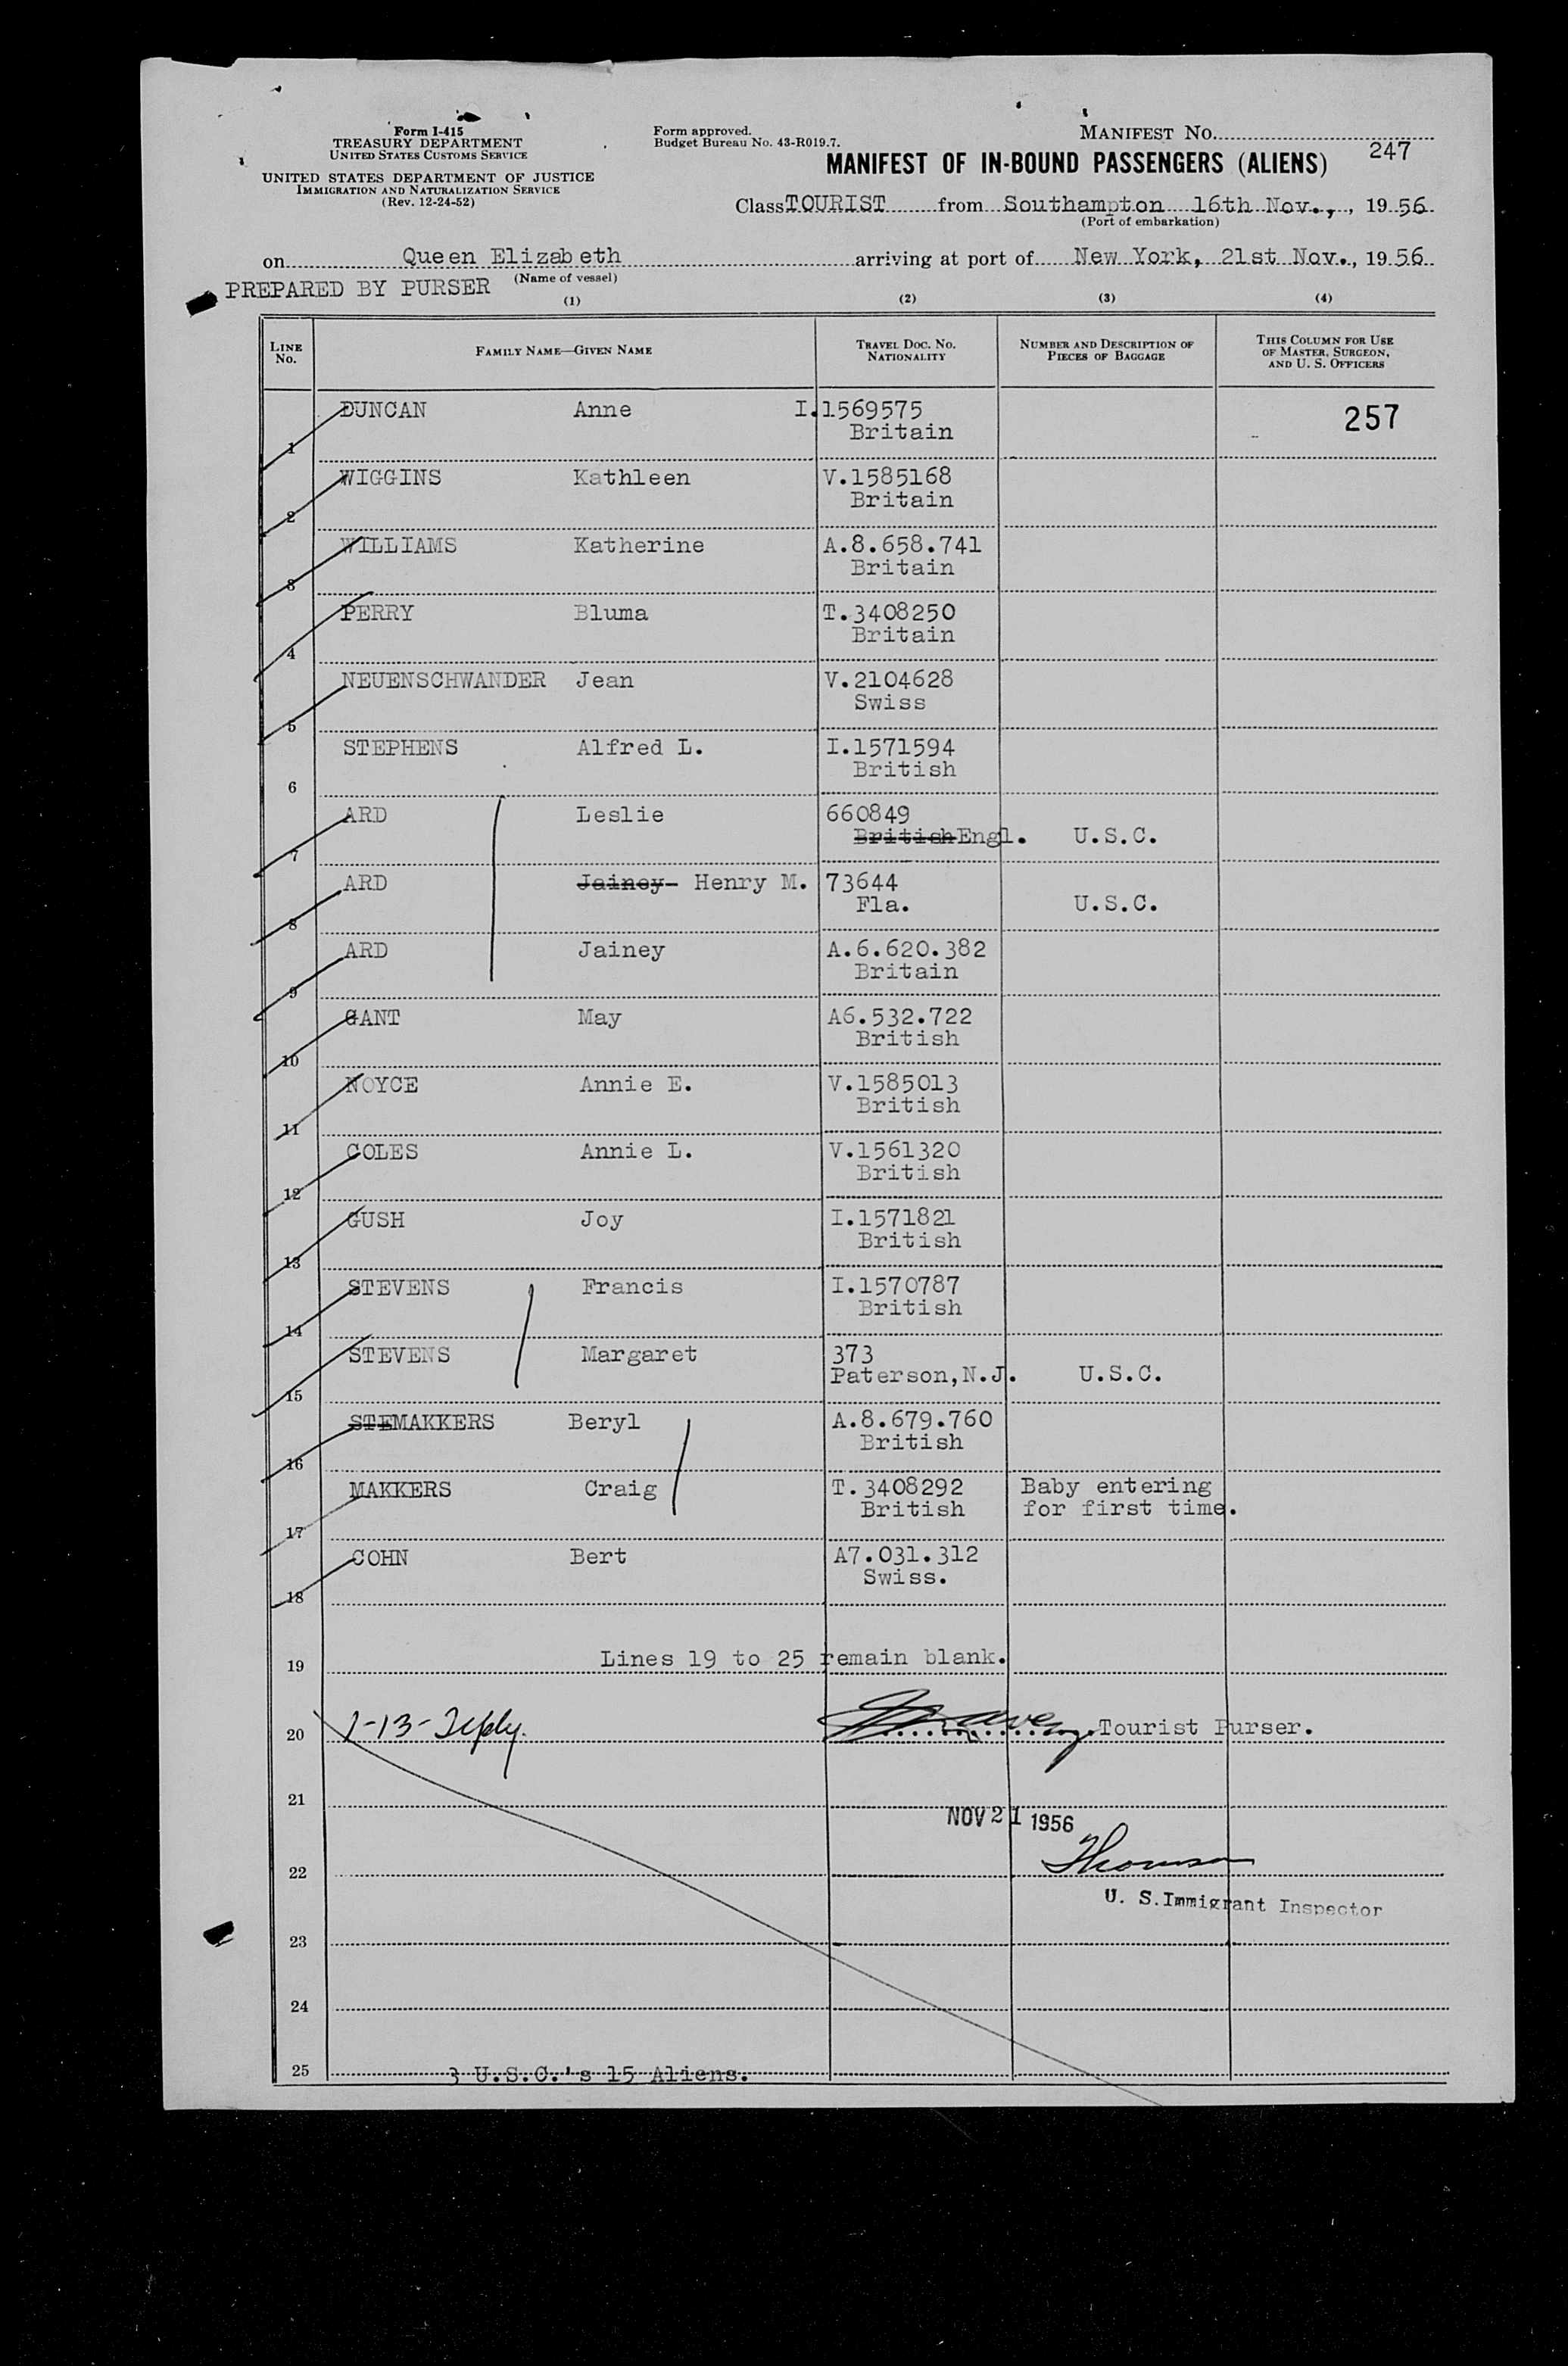 Form I-415
TREASURY DEPARTMENT
UNITED STATES CUSTOMS SERVICE
UNITED STATES DEPARTMENT OF JUSTICE
IMMIGRATION AND NATURALIZATION SERVICE
(Rev. 12-24-52)
Form approved.
Budget Bureau No. 43-R019.7.
MANIFEST NO.
247
MANIFEST OF IN-BOUND PASSENGERS (ALIENS)
Class TOURIST from Southampton 16th Nov., , 19 56
(Port of embarkation)
on Queen Elizabeth arriving at port of New York, 21st Nov., 19 56
(Name of vessel)
PREPARED BY PURSER
(1) (2) (3) (4)
LINE NO. FAMILY NAME—GIVEN NAME TRAVEL DOC. NO. NATIONALITY NUMBER AND DESCRIPTION OF PIECES OF BAGGAGE THIS COLUMN FOR USE OF MASTER, SURGEON, AND U. S. OFFICERS
DUNCAN Anne I.1569575 257
1 Britain
WIGGINS Kathleen V.1585168
2 Britain
WILLIAMS Katherine A.8.658.741
3 Britain
PERRY Bluma T.3408250
4 Britain
NEUENSCHWANDER Jean V.2104628
5 Swiss
STEPHENS Alfred L. I.1571594
6 British
ARD Leslie 660849
7 British Engl. U.S.C.
ARD Jainey Henry M. 73644
8 Fla. U.S.C.
ARD Jainey A.6.620.382
9 Britain
GANT May A6.532.722
10 British
NOYCE Annie E. V.1585013
11 British
COLES Annie L. V.1561320
12 British
GUSH Joy I.1571821
13 British
STEVENS Francis I.1570787
14 British
STEVENS Margaret 373
15 Paterson,N.J. U.S.C.
STEMAKKERS Beryl A.8.679.760
16 British
MAKKERS Craig T.3408292 Baby entering
17 British for first time.
COHN Bert A7.031.312
18 Swiss.
19 Lines 19 to 25 remain blank.
20 Tourist Purser.
21
NOV 21 1956
22
U. S. Immigrant Inspector
23
24
25 3 U.S.C.'s 15 Aliens.